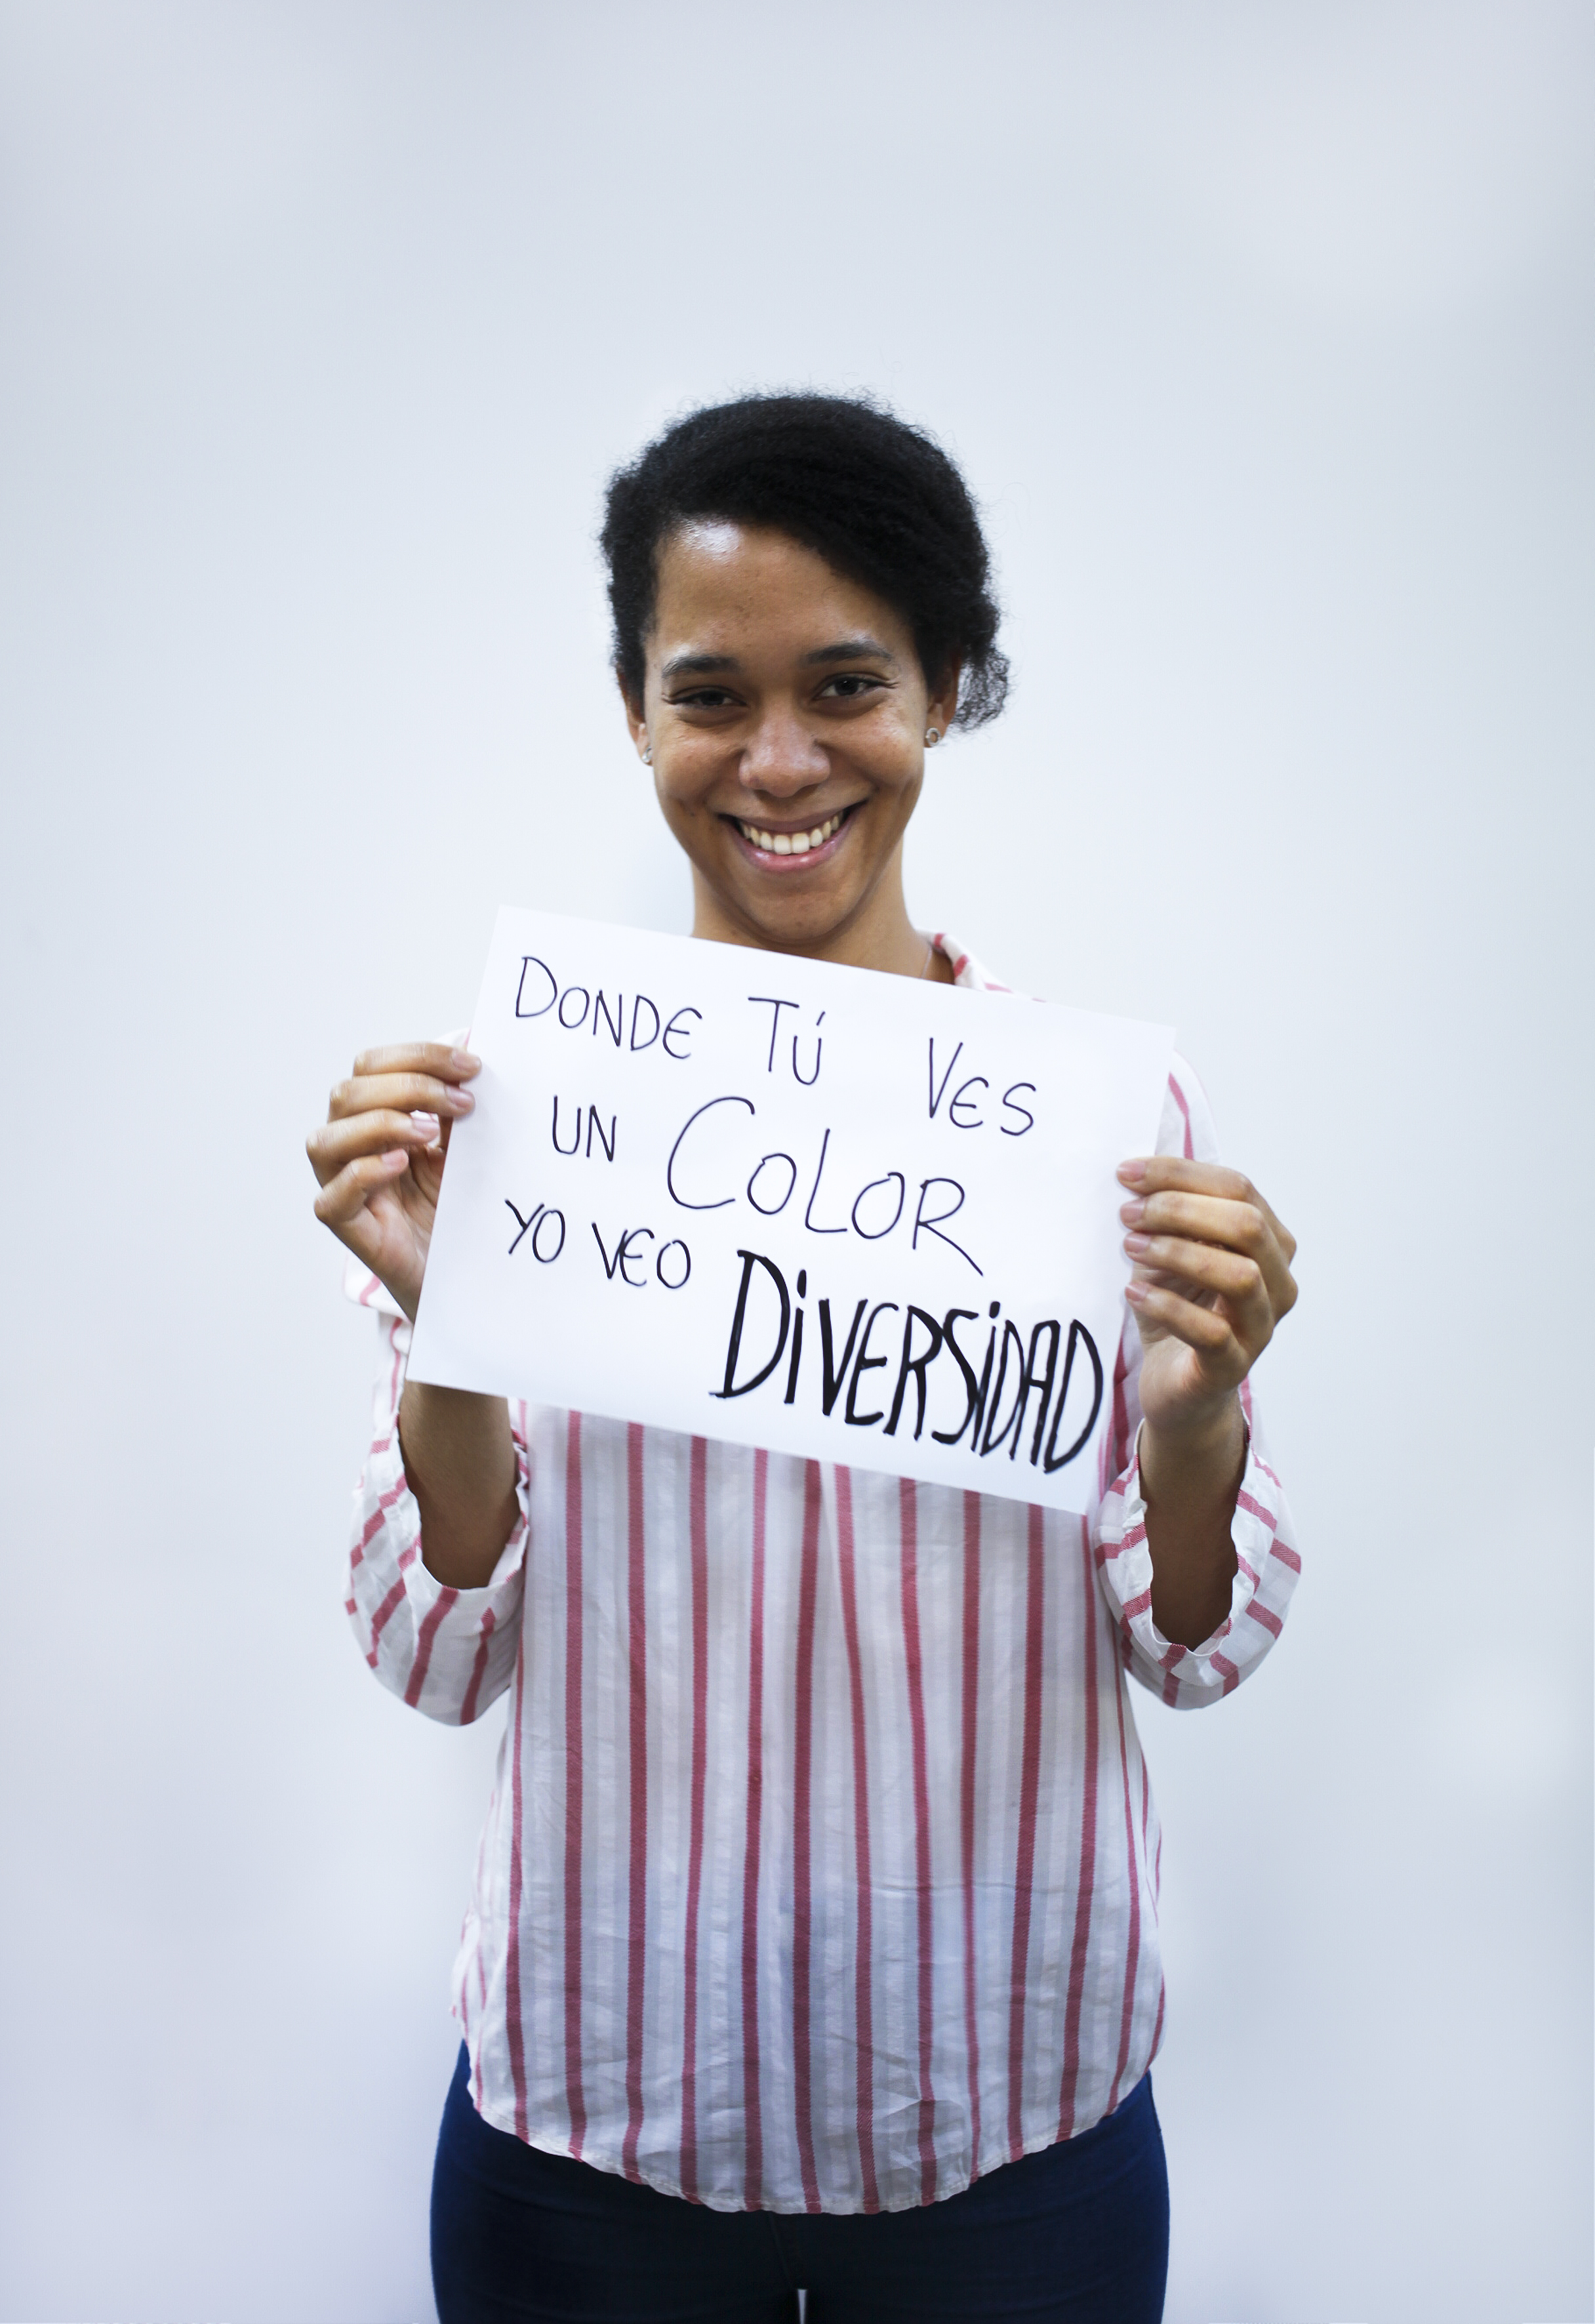 DONDE TÚ VES
UN COLOR
YO VEO DiVERSiDAD